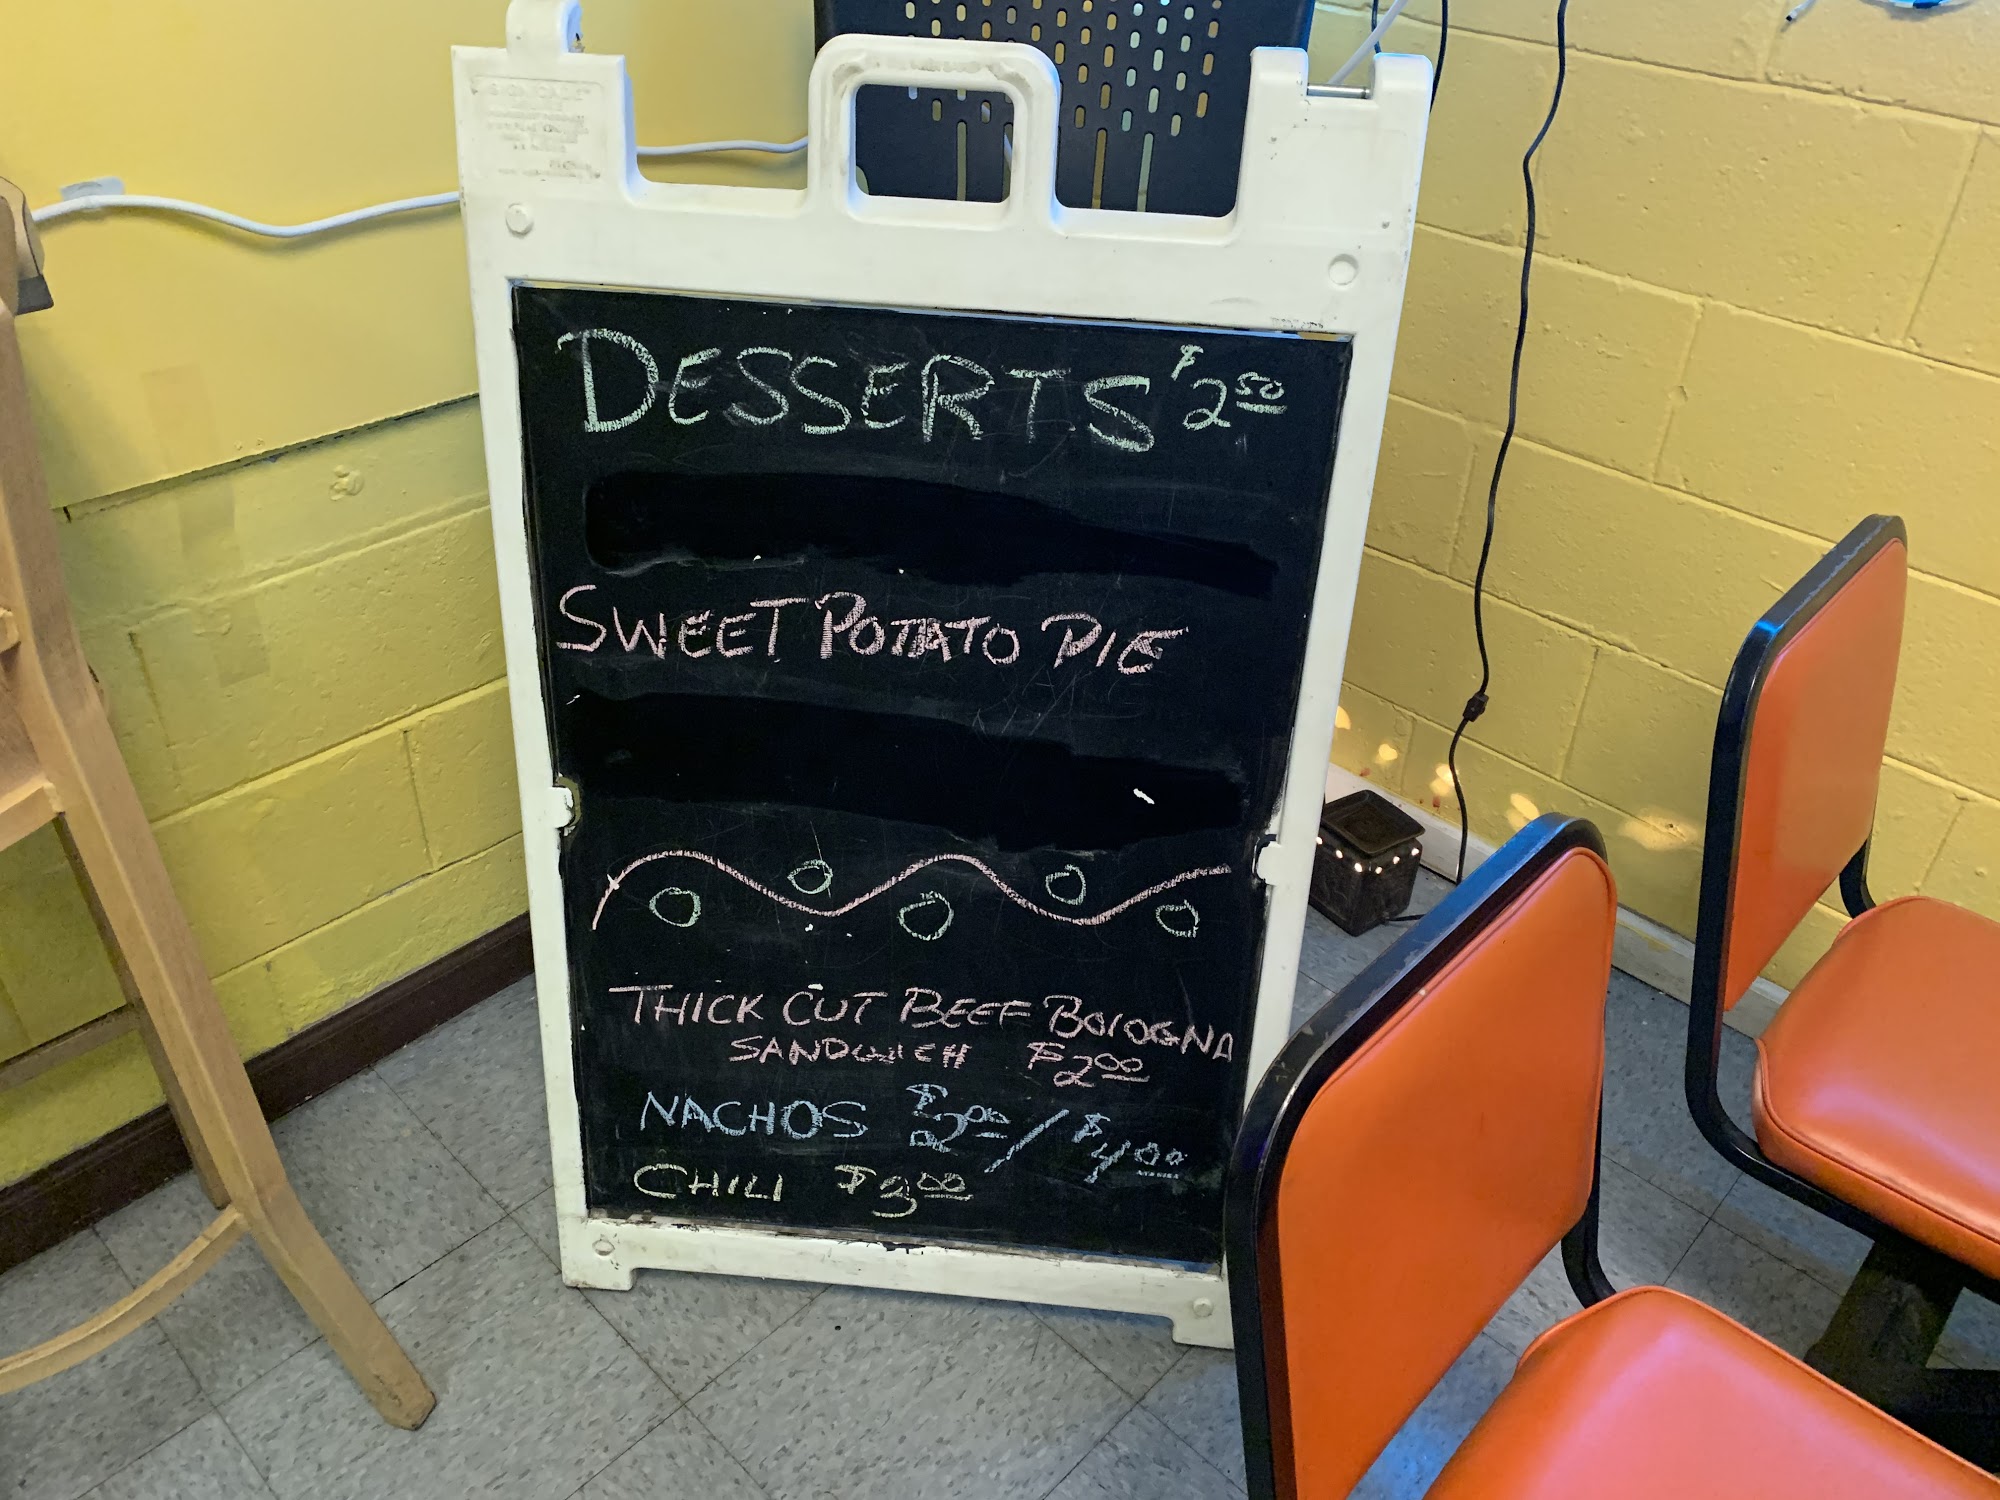 DESSERTS $2.50
SWEET POTATO PIE
THICK CUT BEEF BOLOGNA
SANDWICH $2.00
NACHOS $2.00/$4.00
CHILI $3.00